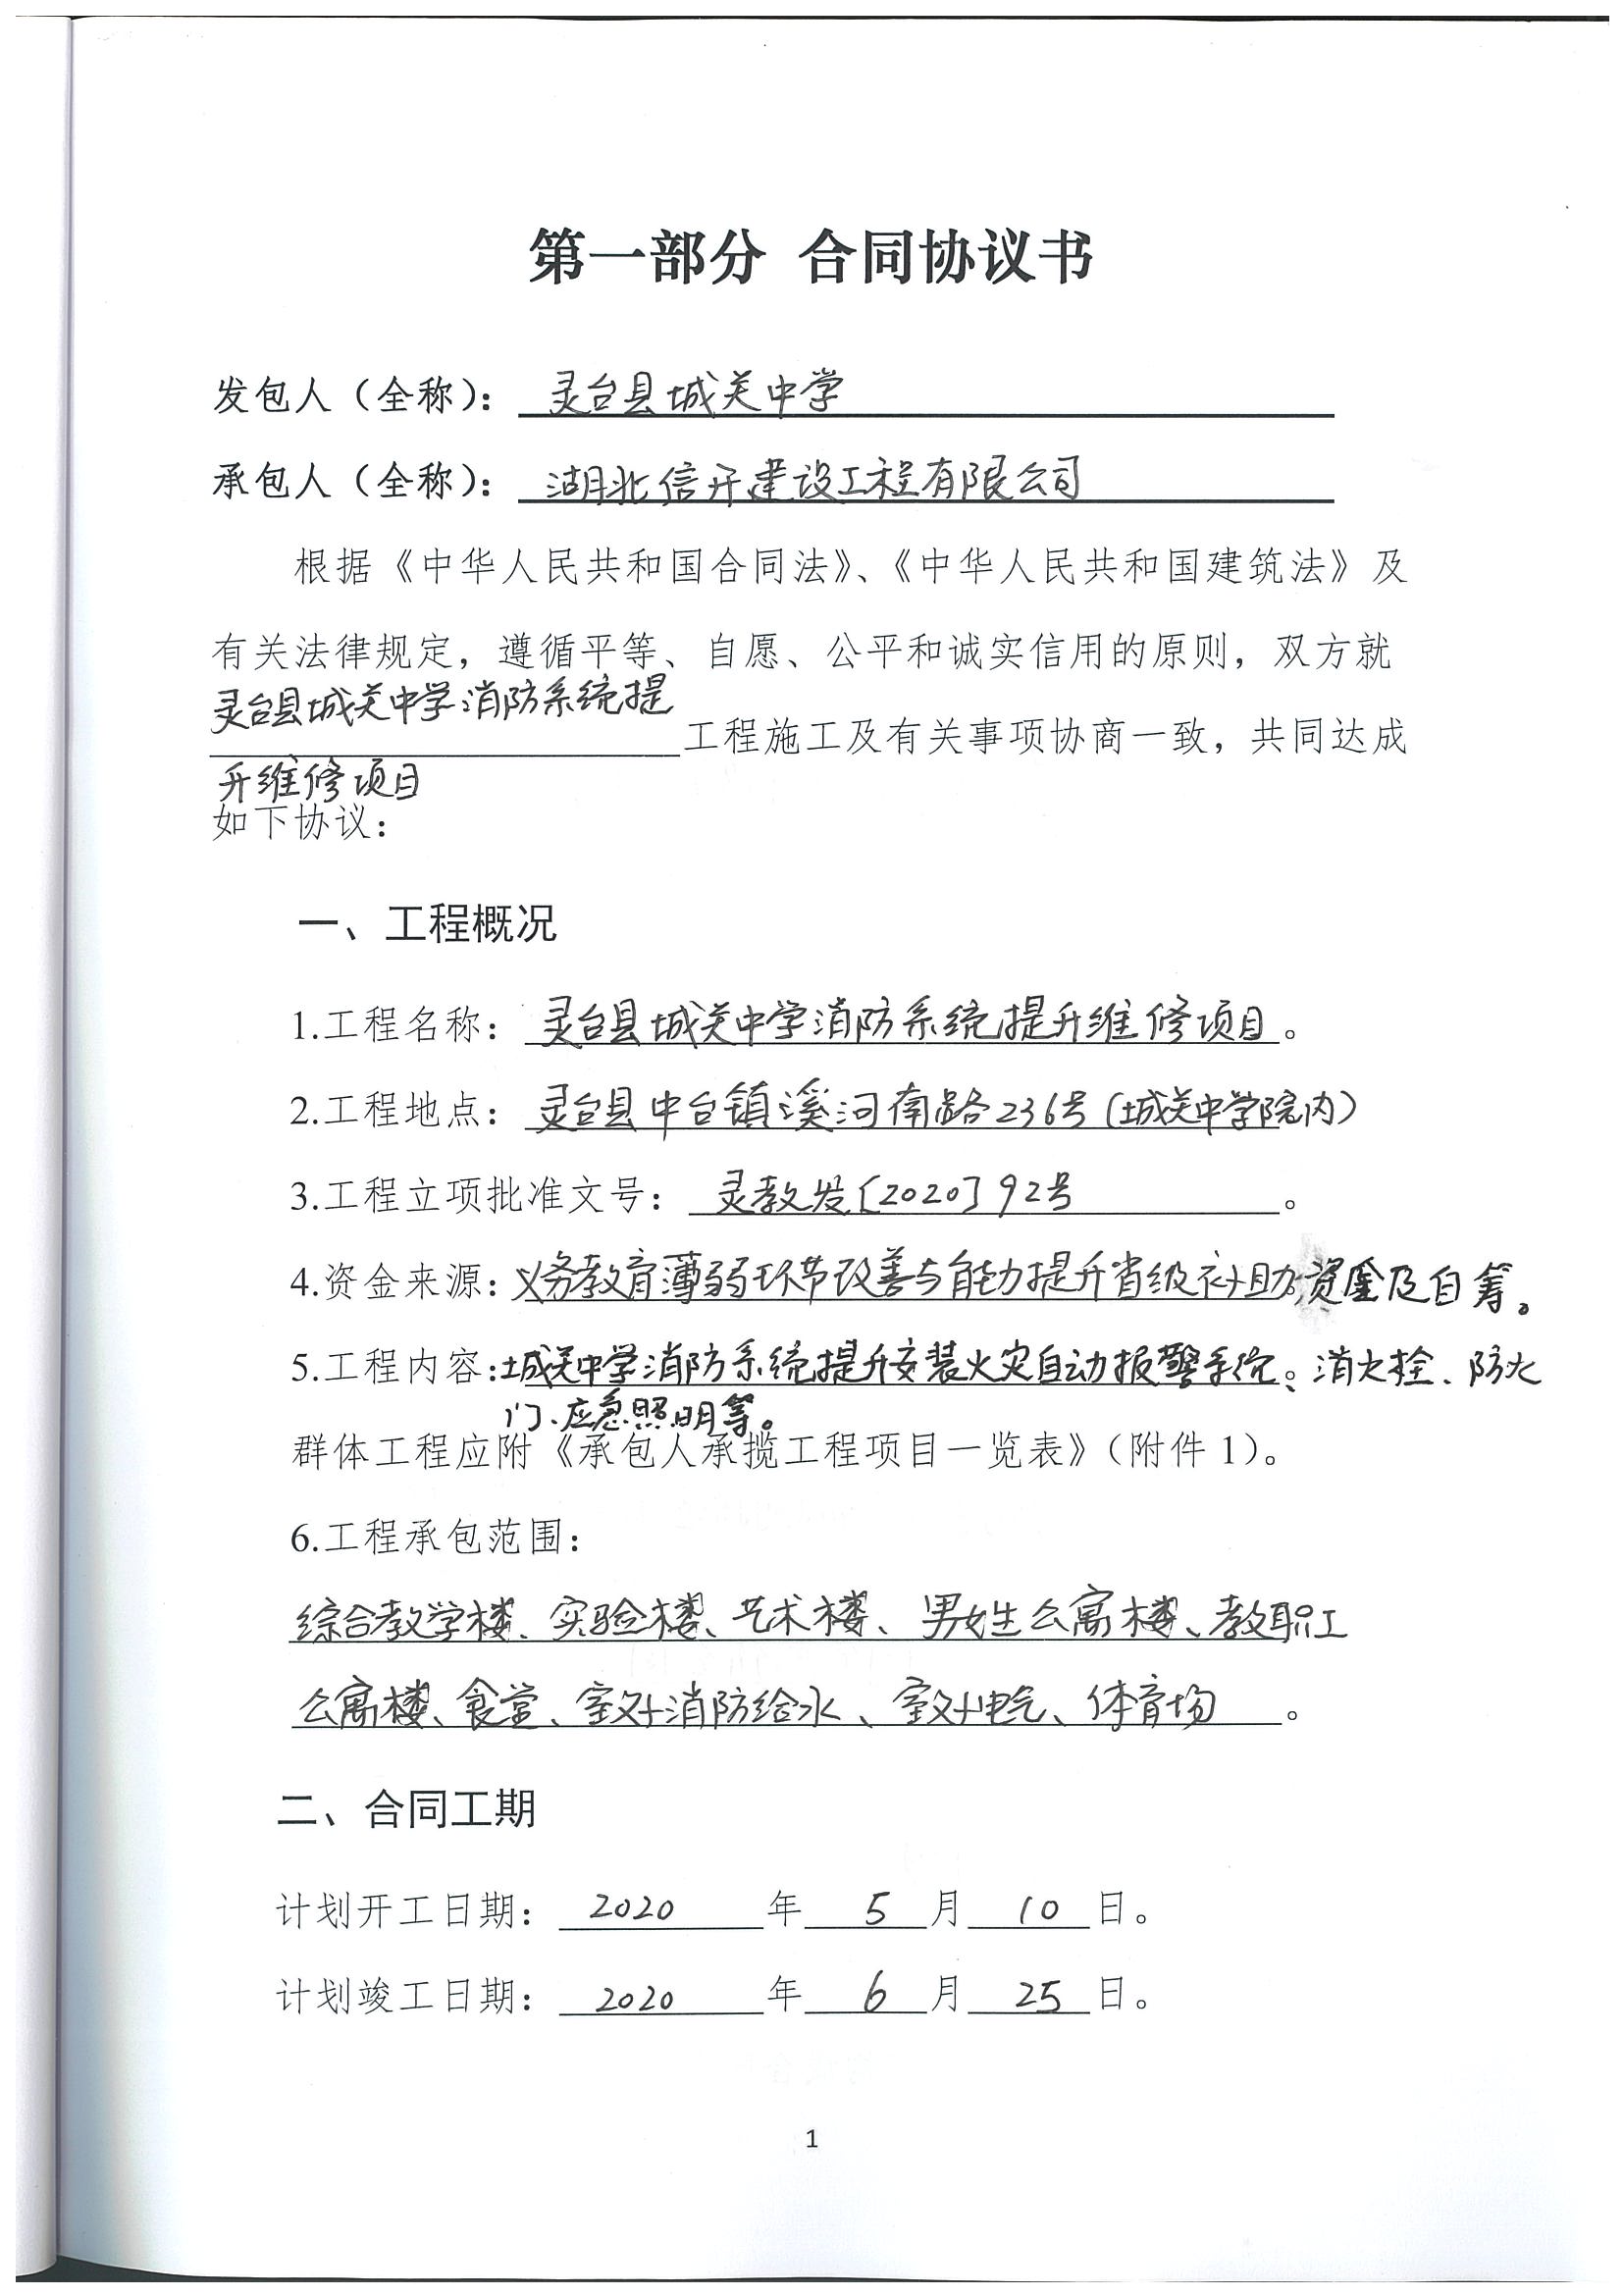 第一部分 合同协议书
发包人（全称）：灵台县城关中学
承包人（全称）：湖北信开建设工程有限公司
根据《中华人民共和国合同法》、《中华人民共和国建筑法》及
有关法律规定，遵循平等、自愿、公平和诚实信用的原则，双方就
灵台县城关中学消防系统提
工程施工及有关事项协商一致，共同达成
升维修项目
如下协议：
一、工程概况
1.工程名称：灵台县城关中学消防系统提升维修项目。
2.工程地点：灵台县中台镇溪河南路236号（城关中学院内）
3.工程立项批准文号：灵教发〔2020〕92号。
4.资金来源：义务教育薄弱环节改善与能力提升省级补助资金及自筹。
5.工程内容：城关中学消防系统提升安装火灾自动报警系统、消火栓、防火
门、应急照明等。
群体工程应附《承包人承揽工程项目一览表》（附件1）。
6.工程承包范围：
综合教学楼、实验楼、艺术楼、男女生公寓楼、教职工
公寓楼、食堂、室外消防给水、室外电气、体育场。
二、合同工期
计划开工日期：2020年5月10日。
计划竣工日期：2020年6月25日。
1